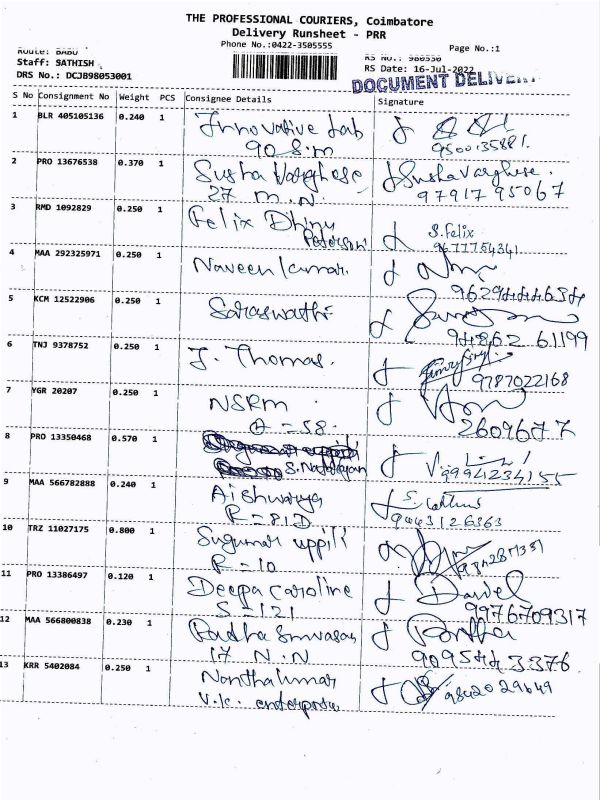 THE PROFESSIONAL COURIERS, Coimbatore
Delivery Runsheet - PRR
Phone No.:0422-3505555
Page No.:1
Route: BABU
Staff: SATHISH
DRS No.: DCJB98053001
RS No.: 980530
RS Date: 16-Jul-2022
DOCUMENT DELIVERY
S No Consignment No Weight PCS Consignee Details Signature
1 BLR 405105136 0.240 1 Innovative Lab
90 S.M 9500135881.
2 PRO 13676538 0.370 1 Susha Varghese Susha Varghese.
27 M.N. 97917 95067
3 RMD 1092829 0.250 1 Felix Dhinu S.Felix
Peterson 9677754341
4 MAA 292325971 0.250 1 Naveen Kumar.
5 KCM 12522906 0.250 1 Saraswathi
94862 61199
6 TNJ 9378752 0.250 1 J. Thomas.
9787022168
7 YGR 20207 0.250 1 NSRM
A = 58. 2609677
8 PRO 13350468 0.570 1
S. Natarajan 9994234155
9 MAA 566782888 0.240 1 Aishwarya
R = 81D 9443126363
10 TRZ 11027175 0.800 1 Sugumar uppili
R = 10
11 PRO 13386497 0.120 1 Deepa Caroline
S = 121 9976709317
12 MAA 566800838 0.230 1 Radha Srinivasan
17 N.N 9095443376
13 KRR 5402084 0.250 1 Nanthakumar
V.K. enterprise 9842029649